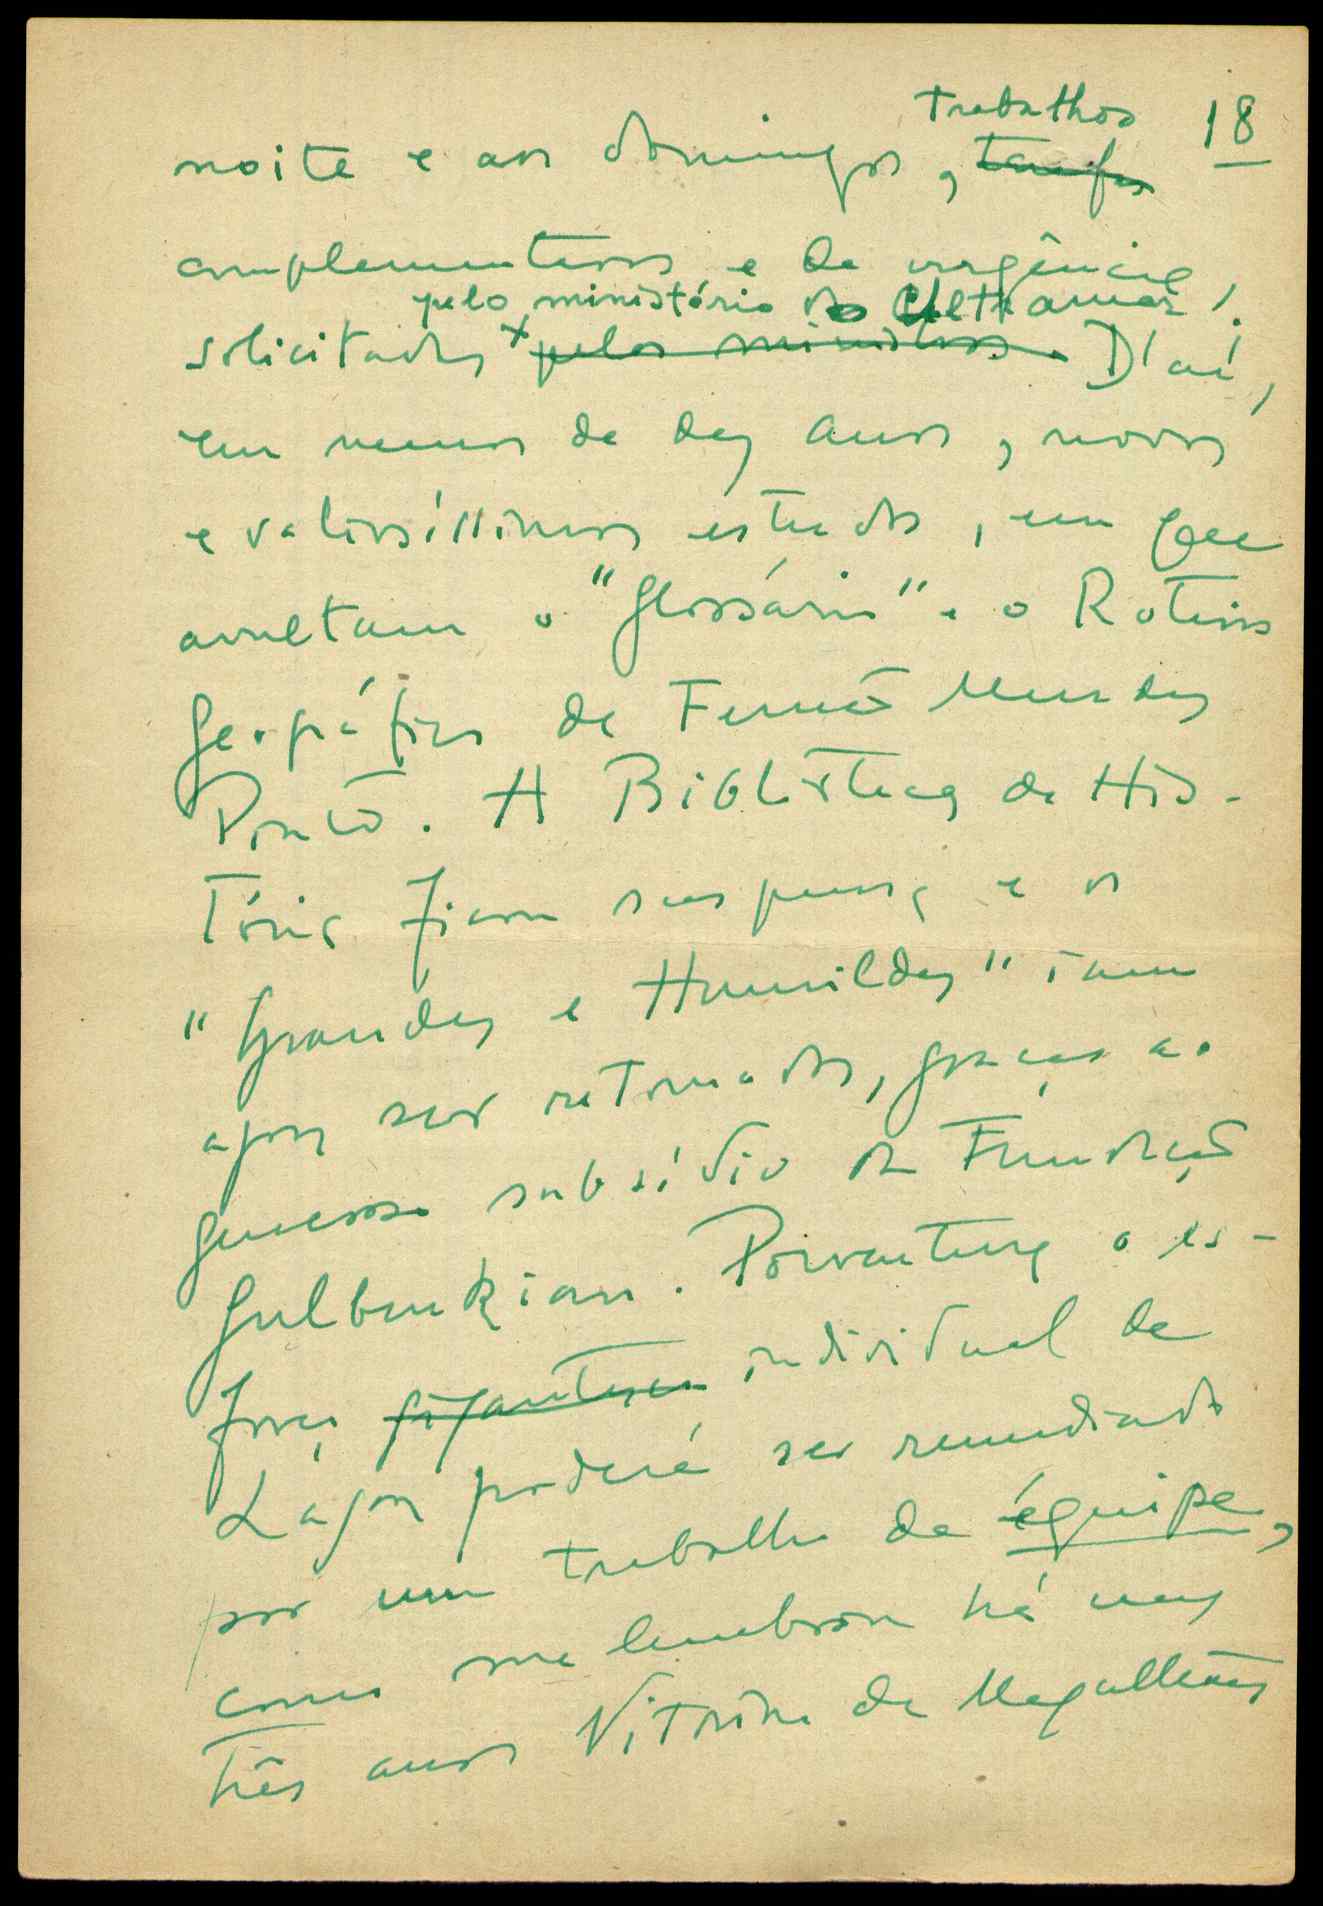 18
trabalhos
noite e aos domingos, tarefas
complementares e de urgência,
pelo ministério do Ultramar.
solicitados pelos ministros. D'aí,
em menos de dez anos, novos
e valiosíssimos estudos, em que
avultam o "Glossário" e o Roteiro
Geográfico de Fernão Mendes
Pinto. A Biblioteca da His-
tória ficara suspensa e os
"Grandes e Humildes" iam
agora ser retomados, graças ao
generoso subsídio da Fundação
Gulbenkian. Porventura o es-
forço gigantesco individual de
Lagoa poderá ser remediado
por um trabalho de équipe,
como me lembrou há uns
três anos Vitorino de Magalhães